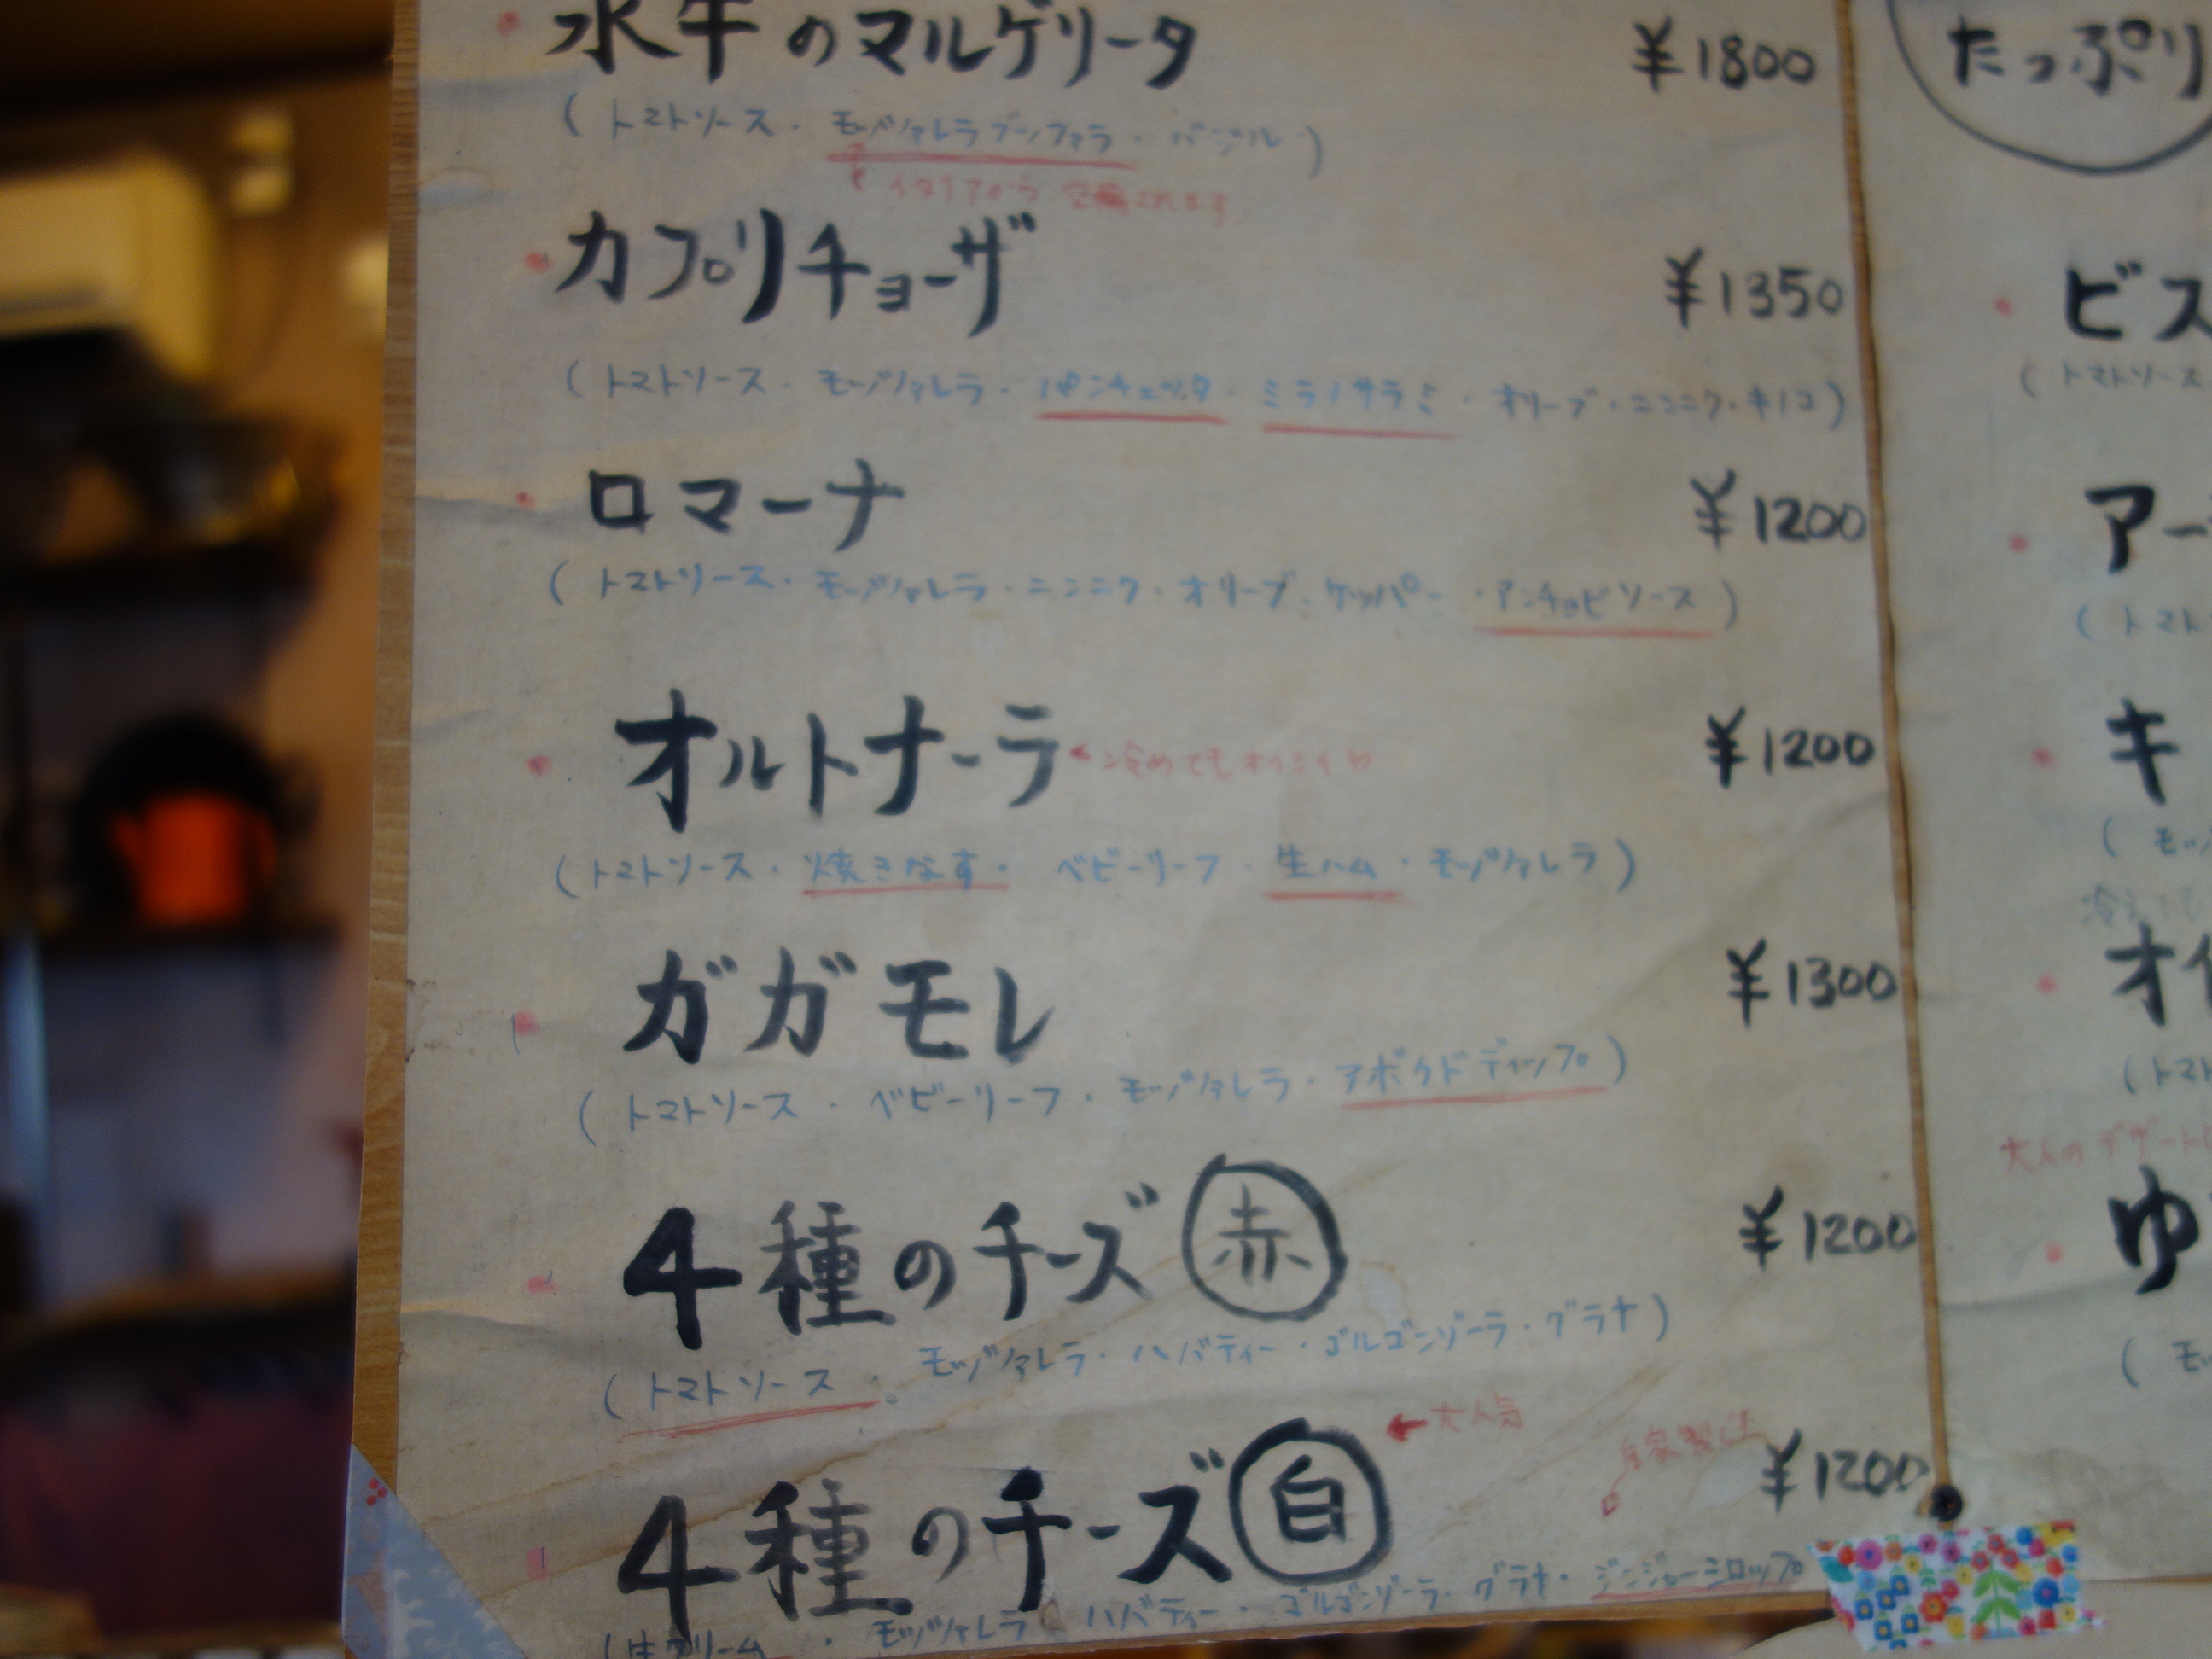 水牛のマルゲリータ ¥1800
(トマトソース・モッヅァレラブーッファラ・バジル)
イタリアから 空輸されます
カプリチョーザ ¥1350
(トマトソース・モッヅァレラ・パンチェッタ・ミラノサラミ・オリーブ・ニンニク・キノコ)
ロマーナ ¥1200
(トマトソース・モッヅァレラ・ニンニク・オリーブ・ケッパー・アンチョビソース)
オルトナーラ 冷めてもオイシイ ¥1200
(トマトソース・焼きなす・ベビーリーフ・生ハム・モッヅァレラ)
ガガモレ ¥1300
(トマトソース・ベビーリーフ・モッヅァレラ・アボカドディップ)
4種のチーズ 赤 ¥1200
(トマトソース・モッヅァレラ・ハバティー・ゴルゴンゾーラ・グラナ)
大人気
4種のチーズ 白 ¥1200
自家製
(生クリーム・モッヅァレラ・ハバティー・ゴルゴンゾーラ・グラナ・ジンジャーシロップ
たっぷり
ビス
(トマトソース
アー
(トマト
キ
(モッ
オイ
(トマト
大人のデザート
ゆ
(モッ